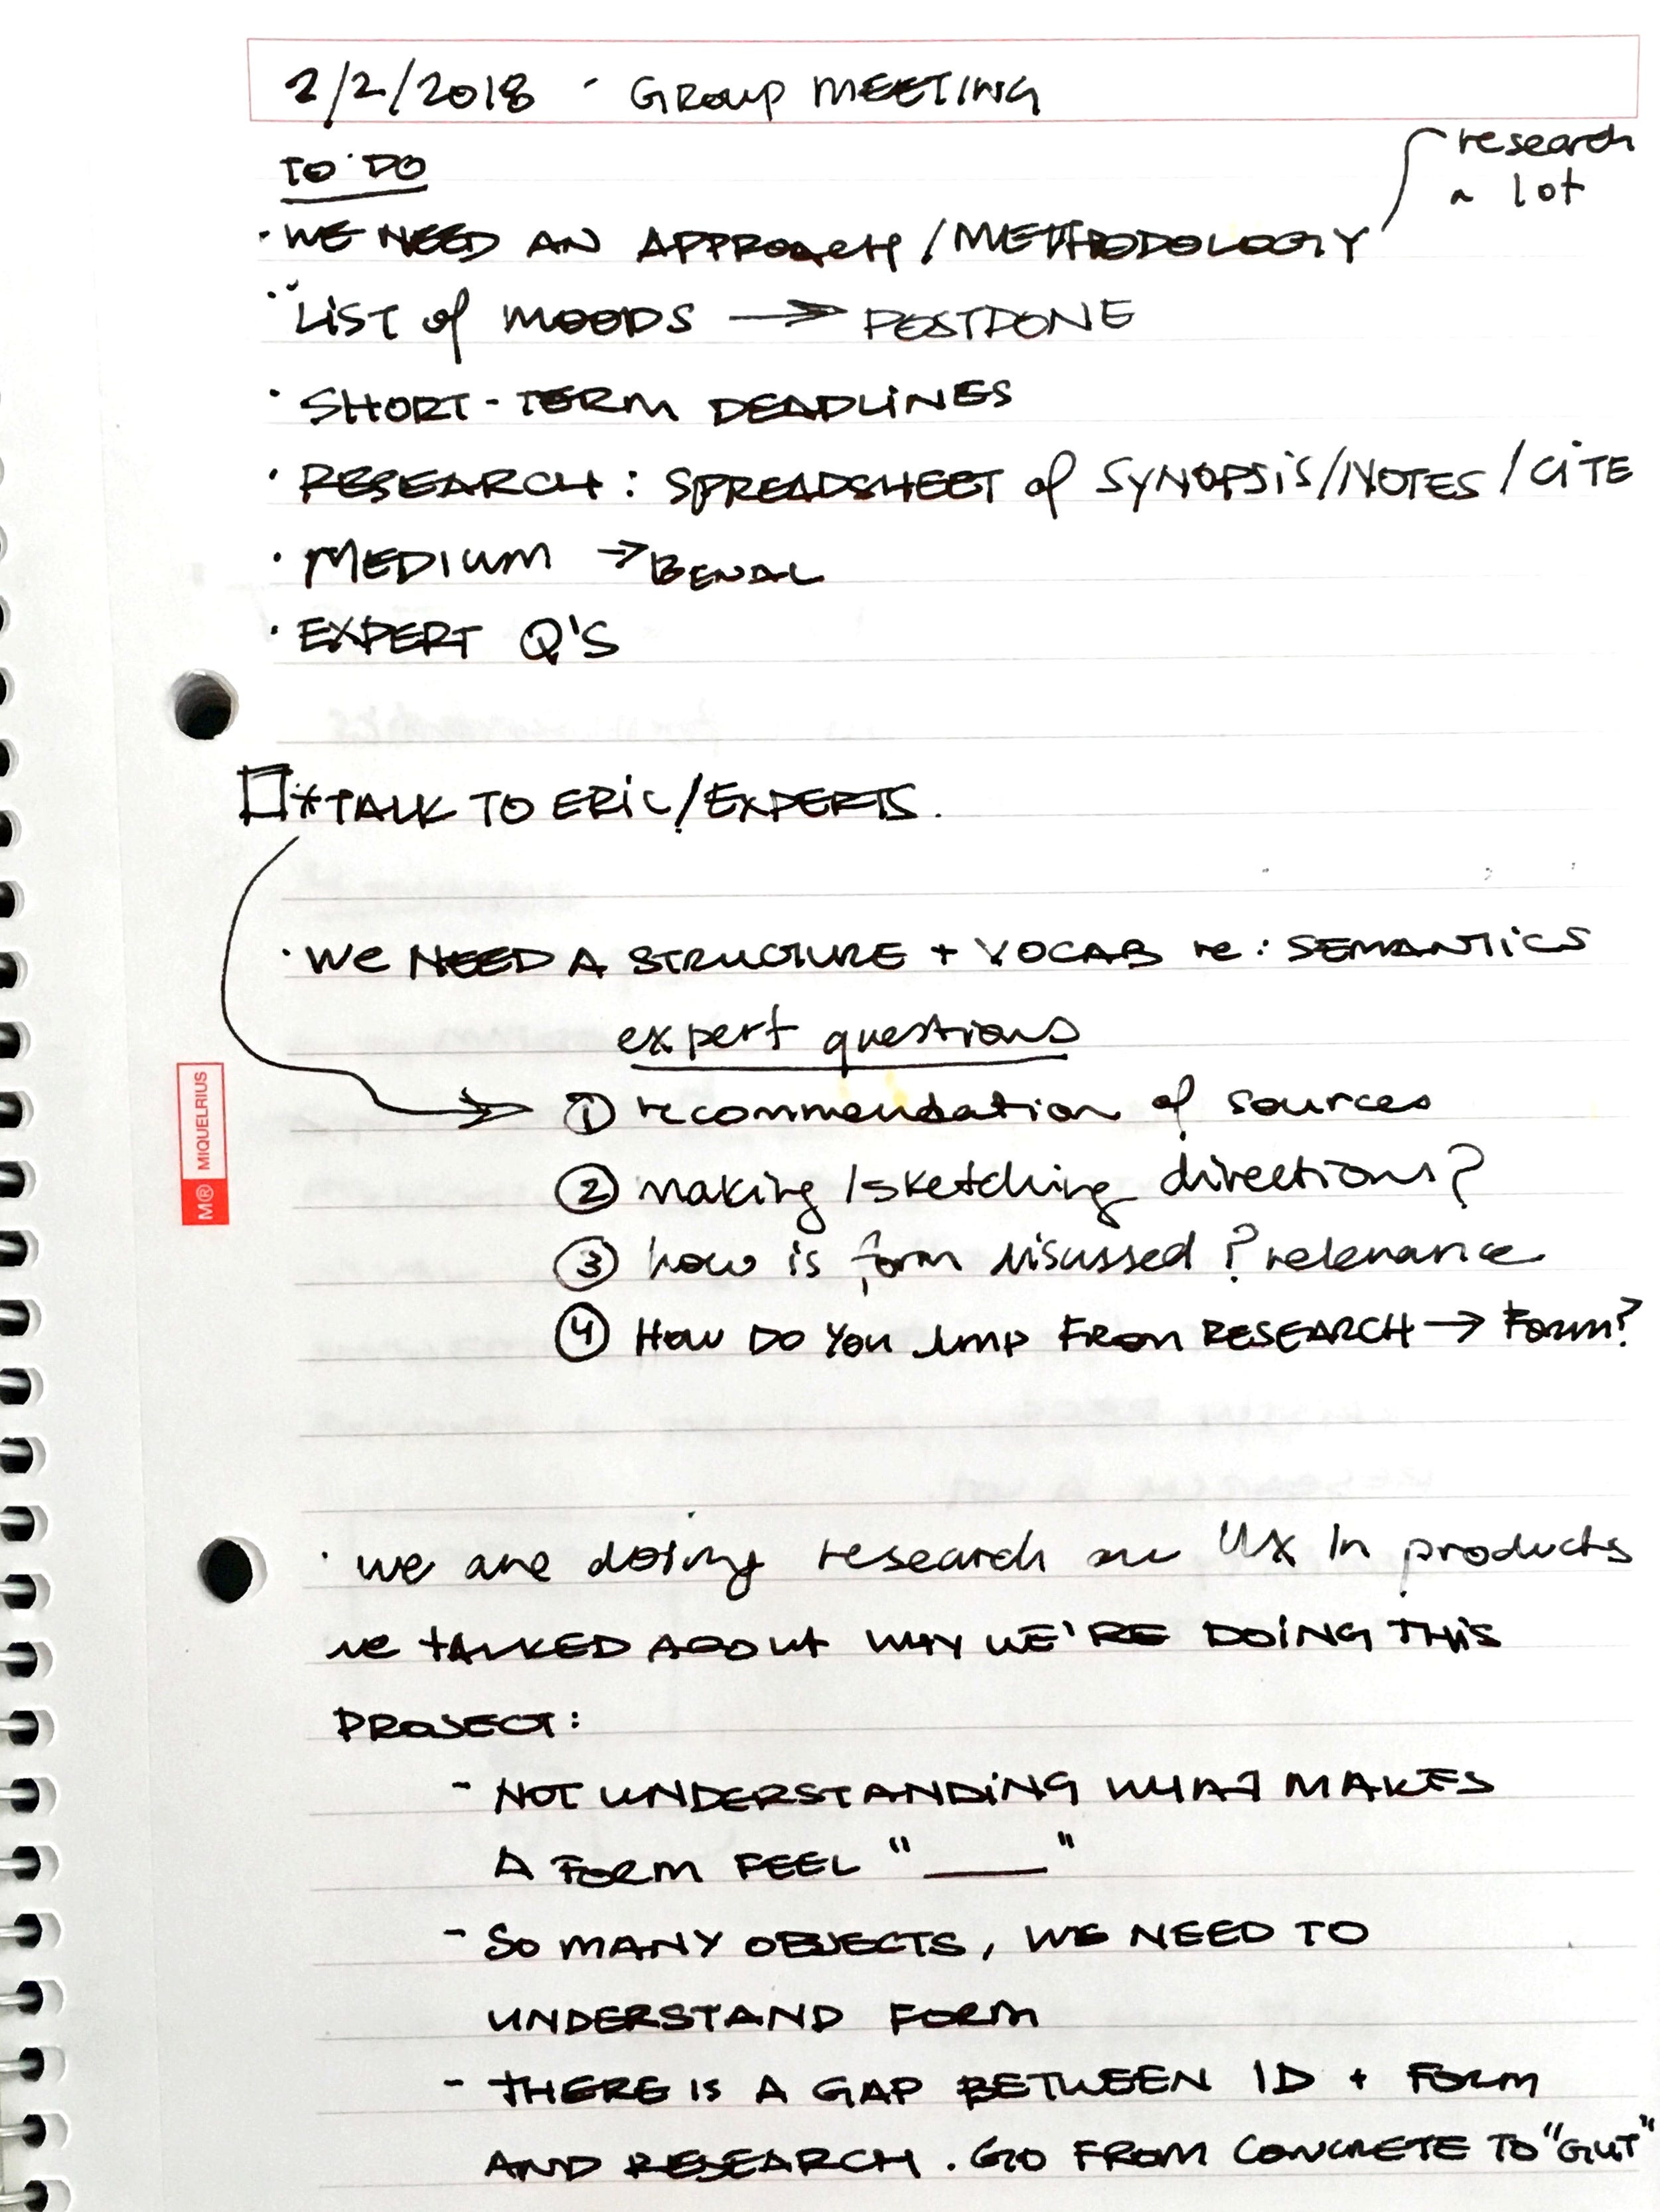 2/2/2018 - GROUP MEETING
TO DO
research
a lot
· WE NEED AN APPROACH / METHODOLOGY
· LIST of MOODS → POSTPONE
· SHORT-TERM DEADLINES
· RESEARCH: SPREADSHEET of SYNOPSIS/NOTES/CITE
· MEDIUM → BENAL
· EXPERT Q'S
□ * TALK TO ERIC/EXPERTS.
· WE NEED A STRUCTURE + VOCAB re: SEMANTICS
expert questions
① recommendation of sources
② making/sketching directions?
③ how is form disussed? relevance
④ HOW DO YOU JUMP FROM RESEARCH → FORM?
M® MIQUELRIUS
· we are doing research on UX in products
we TALKED ABOUT WHY WE'RE DOING THIS
PROJECT:
- NOT UNDERSTANDING WHAT MAKES
A FORM FEEL "____"
- SO MANY OBJECTS, WE NEED TO
UNDERSTAND FORM
- THERE IS A GAP BETWEEN ID + FORM
AND RESEARCH. GO FROM CONCRETE TO "GUT"